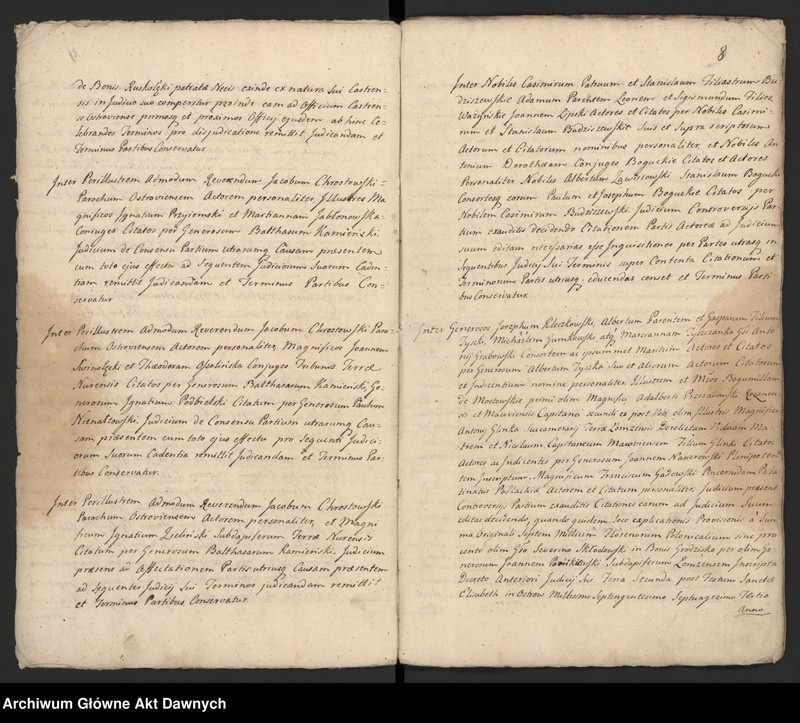 de Bonis Ruskołęki patratæ Necis exinde ex natura sui Castren-
sis in Judicio suo compertur proinde eam ad Officium Castren-
se Ostroviense primosq et proximos Officij ejusdem ab hinc Ce-
lebrandos Terminos pro disjudicatione remittit Judicandam et
Terminus Partibus Conservatur
Inter Perillustrem Admodum Reverendum Jacobum Chrostowski
Parochum Ostroviensem Actorem personaliter, Illustres Ma-
gnificos Ignatium Przyiemski et Mariannam Jabłonowska
Coniuges Citatos per Generosum Balthasarem Kamienski.
Judicium de Consensu Partium utrarumq Causam præsentem
cum toto ejus effectu ad Sequentem Judiciorum Suorum Caden-
tiam remittit Judicandam et Terminus Partibus Con-
servatur
Inter Perillustrem Admodum Reverendum Jacobum Chrostowski Paro-
chum Ostroviensem Actorem personaliter, Magnificos Joannem
et Theodoram Ossolińska Conjuges Tribunos Terræ
Nurensis Citatos per Generosum Balthasarum Kamienski, Ge-
nerosum Ignatium Podbielski Citatum per Generosum Paulum
Nienałtowski. Judicium de Consensu Partium utrarumq Cau-
sam præsentem cum toto ejus effectu pro Sequenti Judici-
orum Suorum Cadentia remittit Judicandam et Terminus Par-
tibus Conservatur.
Inter Perillustrem Admodum Reverendum Jacobum Chrostowski
Parochum Ostroviensem Actorem personaliter, et Magni-
ficum Ignatium Zieliński Subdapiferum Terræ Nurensis
Citatum per Generosum Balthasarum Kamienski. Judicium
præsens ad Affectationem Partis utriusq Causam præsentem
ad sequentes Judicij Sui Terminos judicandam remittit
et Terminus Partibus Conservatur.
8
Inter Nobiles Casimirum Patruum et Stanislaum Filiastrum Bu-
dziszewskie Adamum Parentem Leonem et Sigismundum Filios
Ważyńskie Joannem Lipski Actores et Citatos per Nobilem Casimi-
rum et Stanislaum Budziszewskie Suis et Supra scriptorum
Actorum et Citatorum nominibus personaliter, et Nobiles An-
tonium Dorotheam Conjuges Boguckie Citatos et Actores
Personaliter Nobiles Albertum Stanislaum Bogucki
Consortesq eorum Paulum et Josephum Boguckie Citatos per
Nobilem Casimirum Budziszewski. Judicium Controversijs Par-
tium exauditis decidendo Citationem Partis Actoreæ ad Judicium
suum editam necessarias esse Inquisitiones per Partes utrasq in
Sequentibus Judicij Sui Terminis super Contenta Citationum et
Terminorum Partis utriusq educendas censet et Terminus Parti-
bus Conservatur
Inter Generosos Josephum Kleczkowski, Albertum Parentem et Gasparum Filium
Tyszki, Michaelem atq Mariannam Tyszczanka Gsi Anto-
nij Grabowski Consortem ac ipsummet Maritum Actores et Citatos
per Generosum Albertum Tyszka Suo et Aliorum Actorum Citatorum
et Indicentium nomine personaliter. Illustrem et Mcos Bogumillam
de Mostowskie primi olim Magnifici Adalberti Przerawski Rozanen-
sis et Macoviensis Capitanei secundi ex post Voti olim Illustris Magnifici
Antonij Glinka Succamerarij Terræ Lomzensis Derelictam Viduam Ma-
trem et Nicolaum, Capitaneum Macoviensem Filium Glinki Citatos
Actores ac Indicentes per Generosum Joannem Nasierowski Plenipoten-
tem Inscriptum. Magnificum Franciscum Gadowski Pincernidam Pala-
tinatus Podlachiæ Actorem et Citatum personaliter. Judicium præsens
Controversijs Partium exauditis Citationes earum ad Judicium Suum
editas decidendo, quando quidem loco explicationis Provisionis a Sum-
ma Originali Septem Millium Florenorum Polonicalium sine pro-
vento olim Gso Severino Skłodowski in Bonis Grodzisko per olim Ge-
nerosum Joannem Subdapiferum Lomzensem Inscripta
Decreto Anteriori Judicij Sui Feria Secunda post Festum Sanctæ
Elisabeth in Ostrow Millesimo Septingentesimo Septuagesimo Tertio
Anno
Archiwum Główne Akt Dawnych